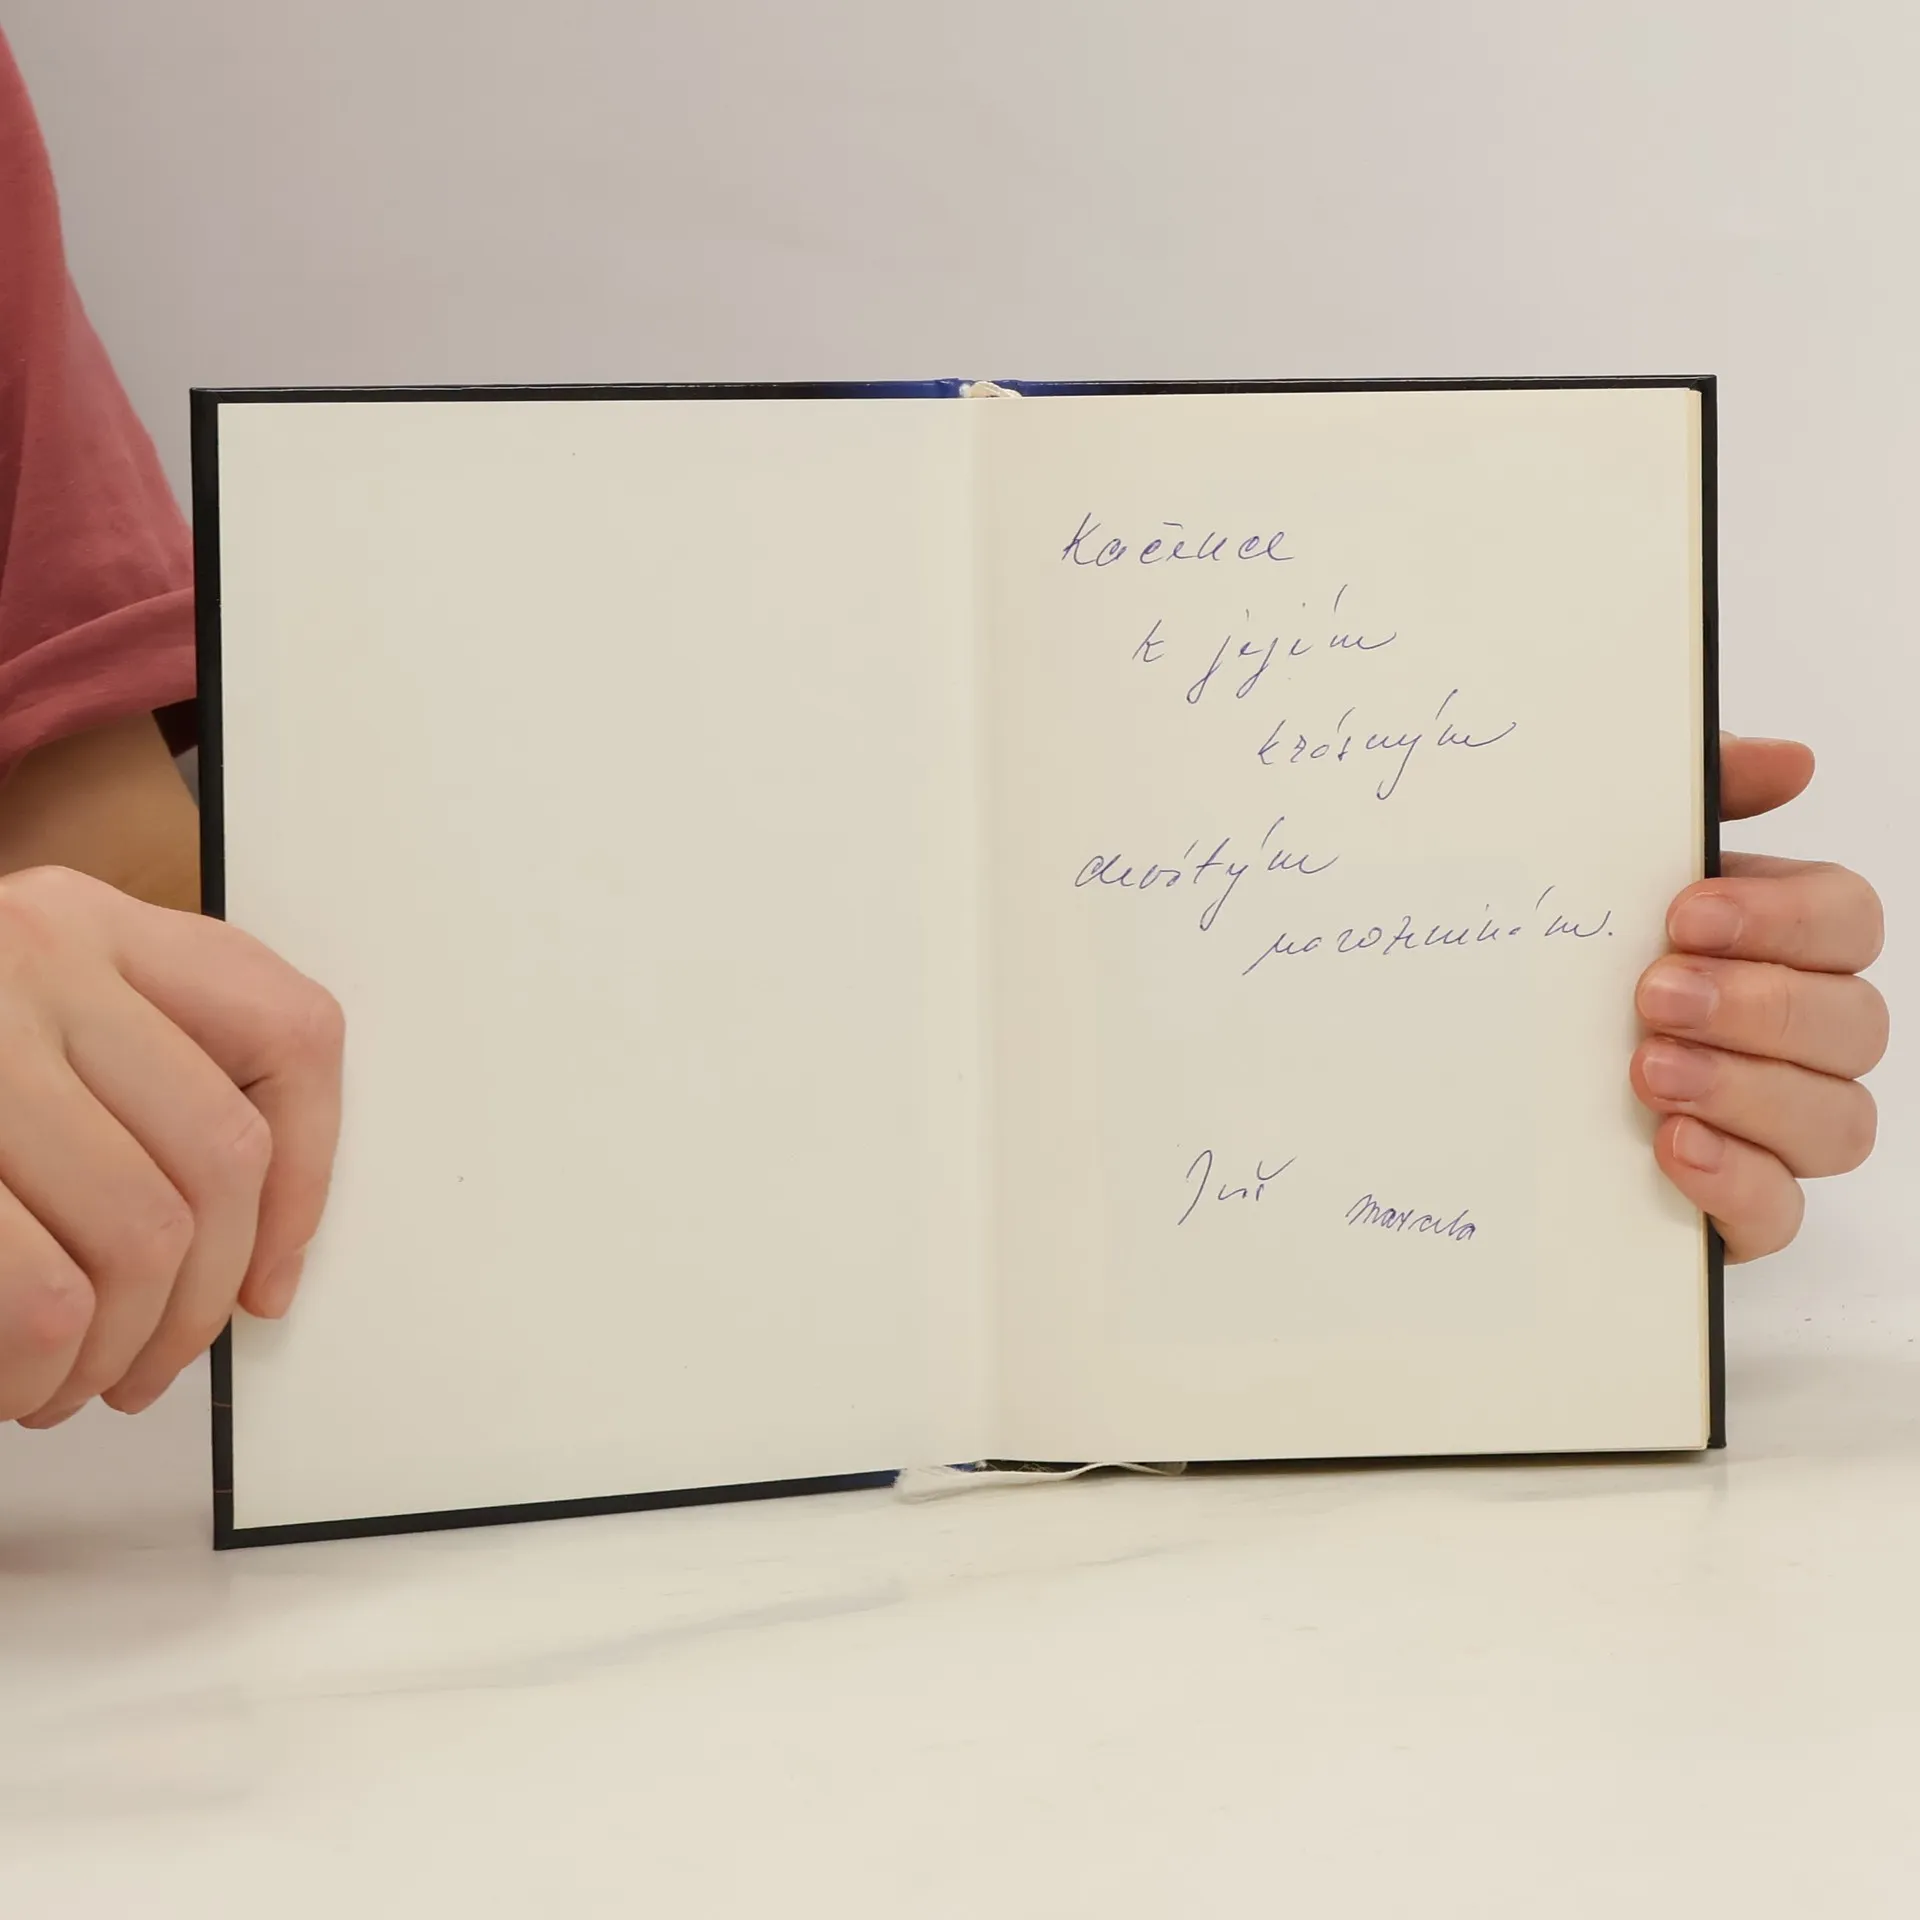 Kačence
k jejím
krásným
devátým
narozeninám.
Jiří Marcela